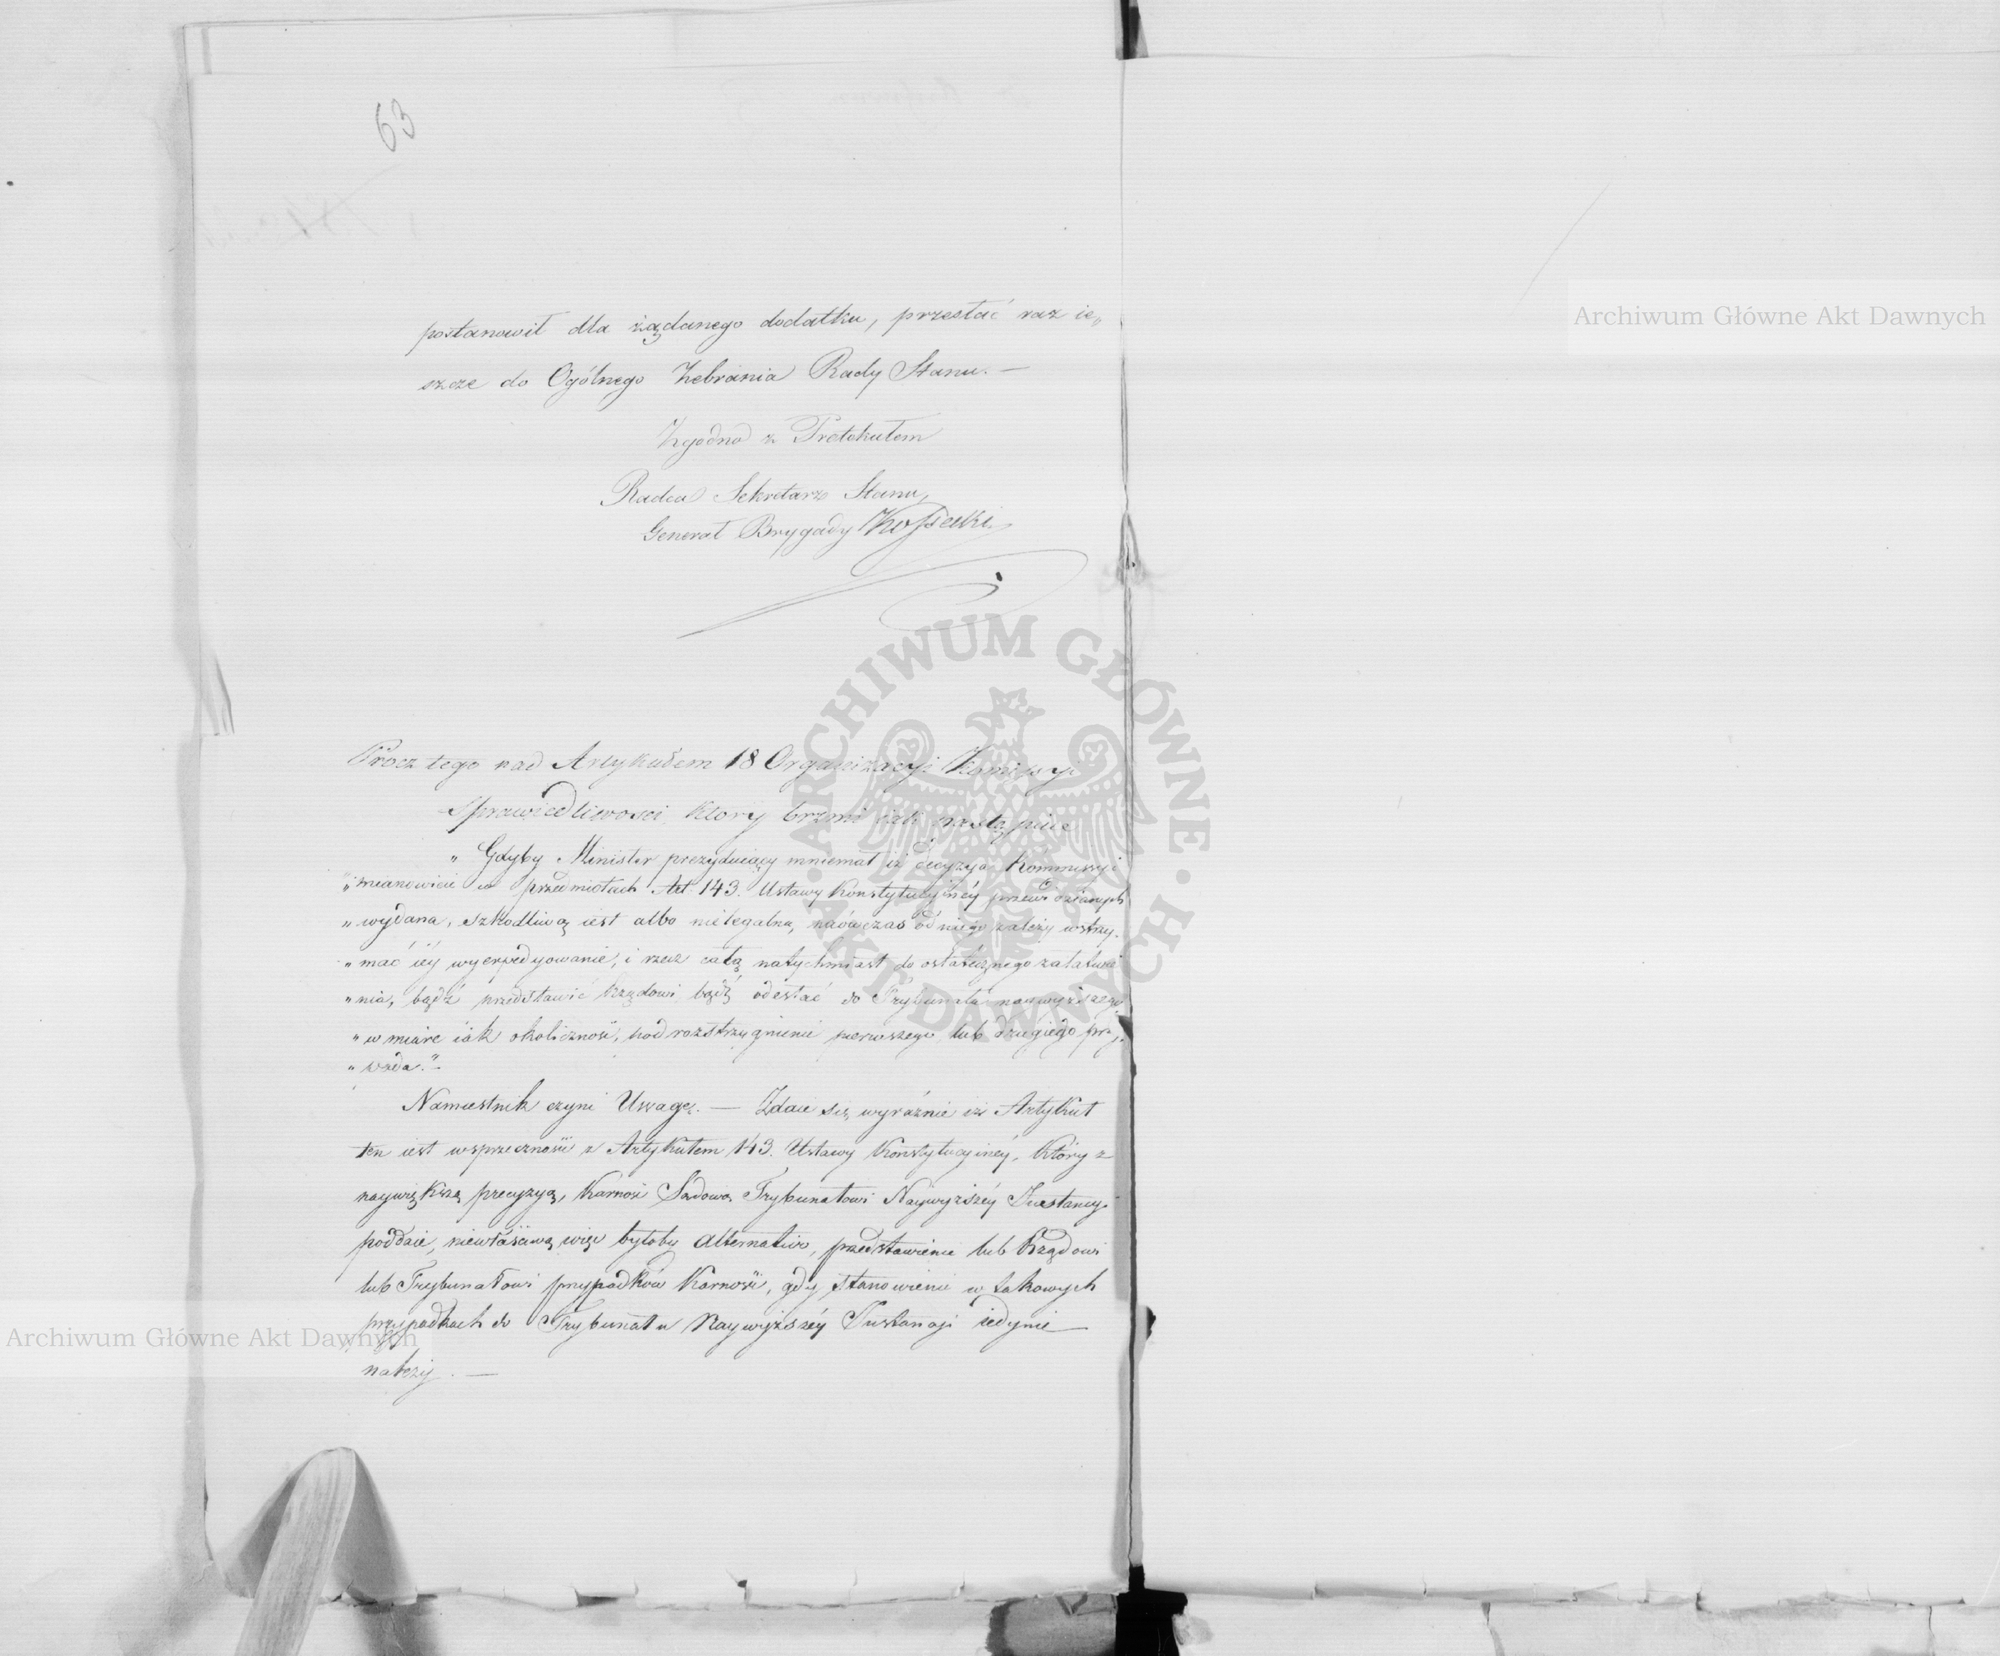 63
postanowił dla żądanego dodatku, przesłać raz ie„
szcze do Ogólnego Zebrania Rady Stanu. —
Zgodno z Protokułem
Radca Sekretarz Stanu,
Generał Brygady Kossecki
Prócz tego nad Artykułem 18 Organizacyi Kommissyi
Sprawiedliwości, który brzmi iak następuie
„ Gdyby Minister prezyduiący mniemał iż decyzya Kommissyi
„ mianowicie w przedmiotach Art. 143. Ustawy Konstytucyinéy przewidzianych
„ wydana, szkodliwą iest albo nielegalną, naówczas od niego zależy wstrzy-
„ mać iéy wyexpedyowanie, i rzecz całą natychmiast do ostatecznego załatwie
„ nia, bądź przedstawić Rządowi bądź odesłać do Trybunału naywyższego
„ w miarę iak okoliczność, pod rozstrzygnienie pierwszego lub drugiego przy-
„ pada."-
Namiestnik czyni Uwagę. — Zdaie się wyraźnie iż Artykuł
ten iest w sprzeczności z Artykułem 143. Ustawy Konstytucyinéy, który z
naywiększą precyzyą, Karność Sądową Trybunałowi Naywyższéy Instancyi
poddaie, niewłaściwą więc byłoby alternatiwa, przedstawienie lub Rządowi
lub Trybunałowi przypadków Karności, gdy stanowienie w takowych
przypadkach do Trybunału Naywyższéy Instancyi iedynie
należy. —
Archiwum Główne Akt Dawnych
Archiwum Główne Akt Dawnych
ARCHIWUM GŁÓWNE AKT DAWNYCH